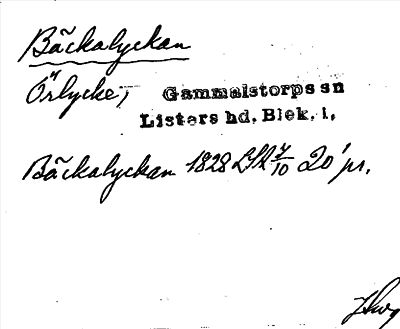 Bäckalyckan
Örlycke,
Gammalstorps sn
Listers hd, Blek. l,
Bäckalyckan 1828 LSA 7/10 20 pr.